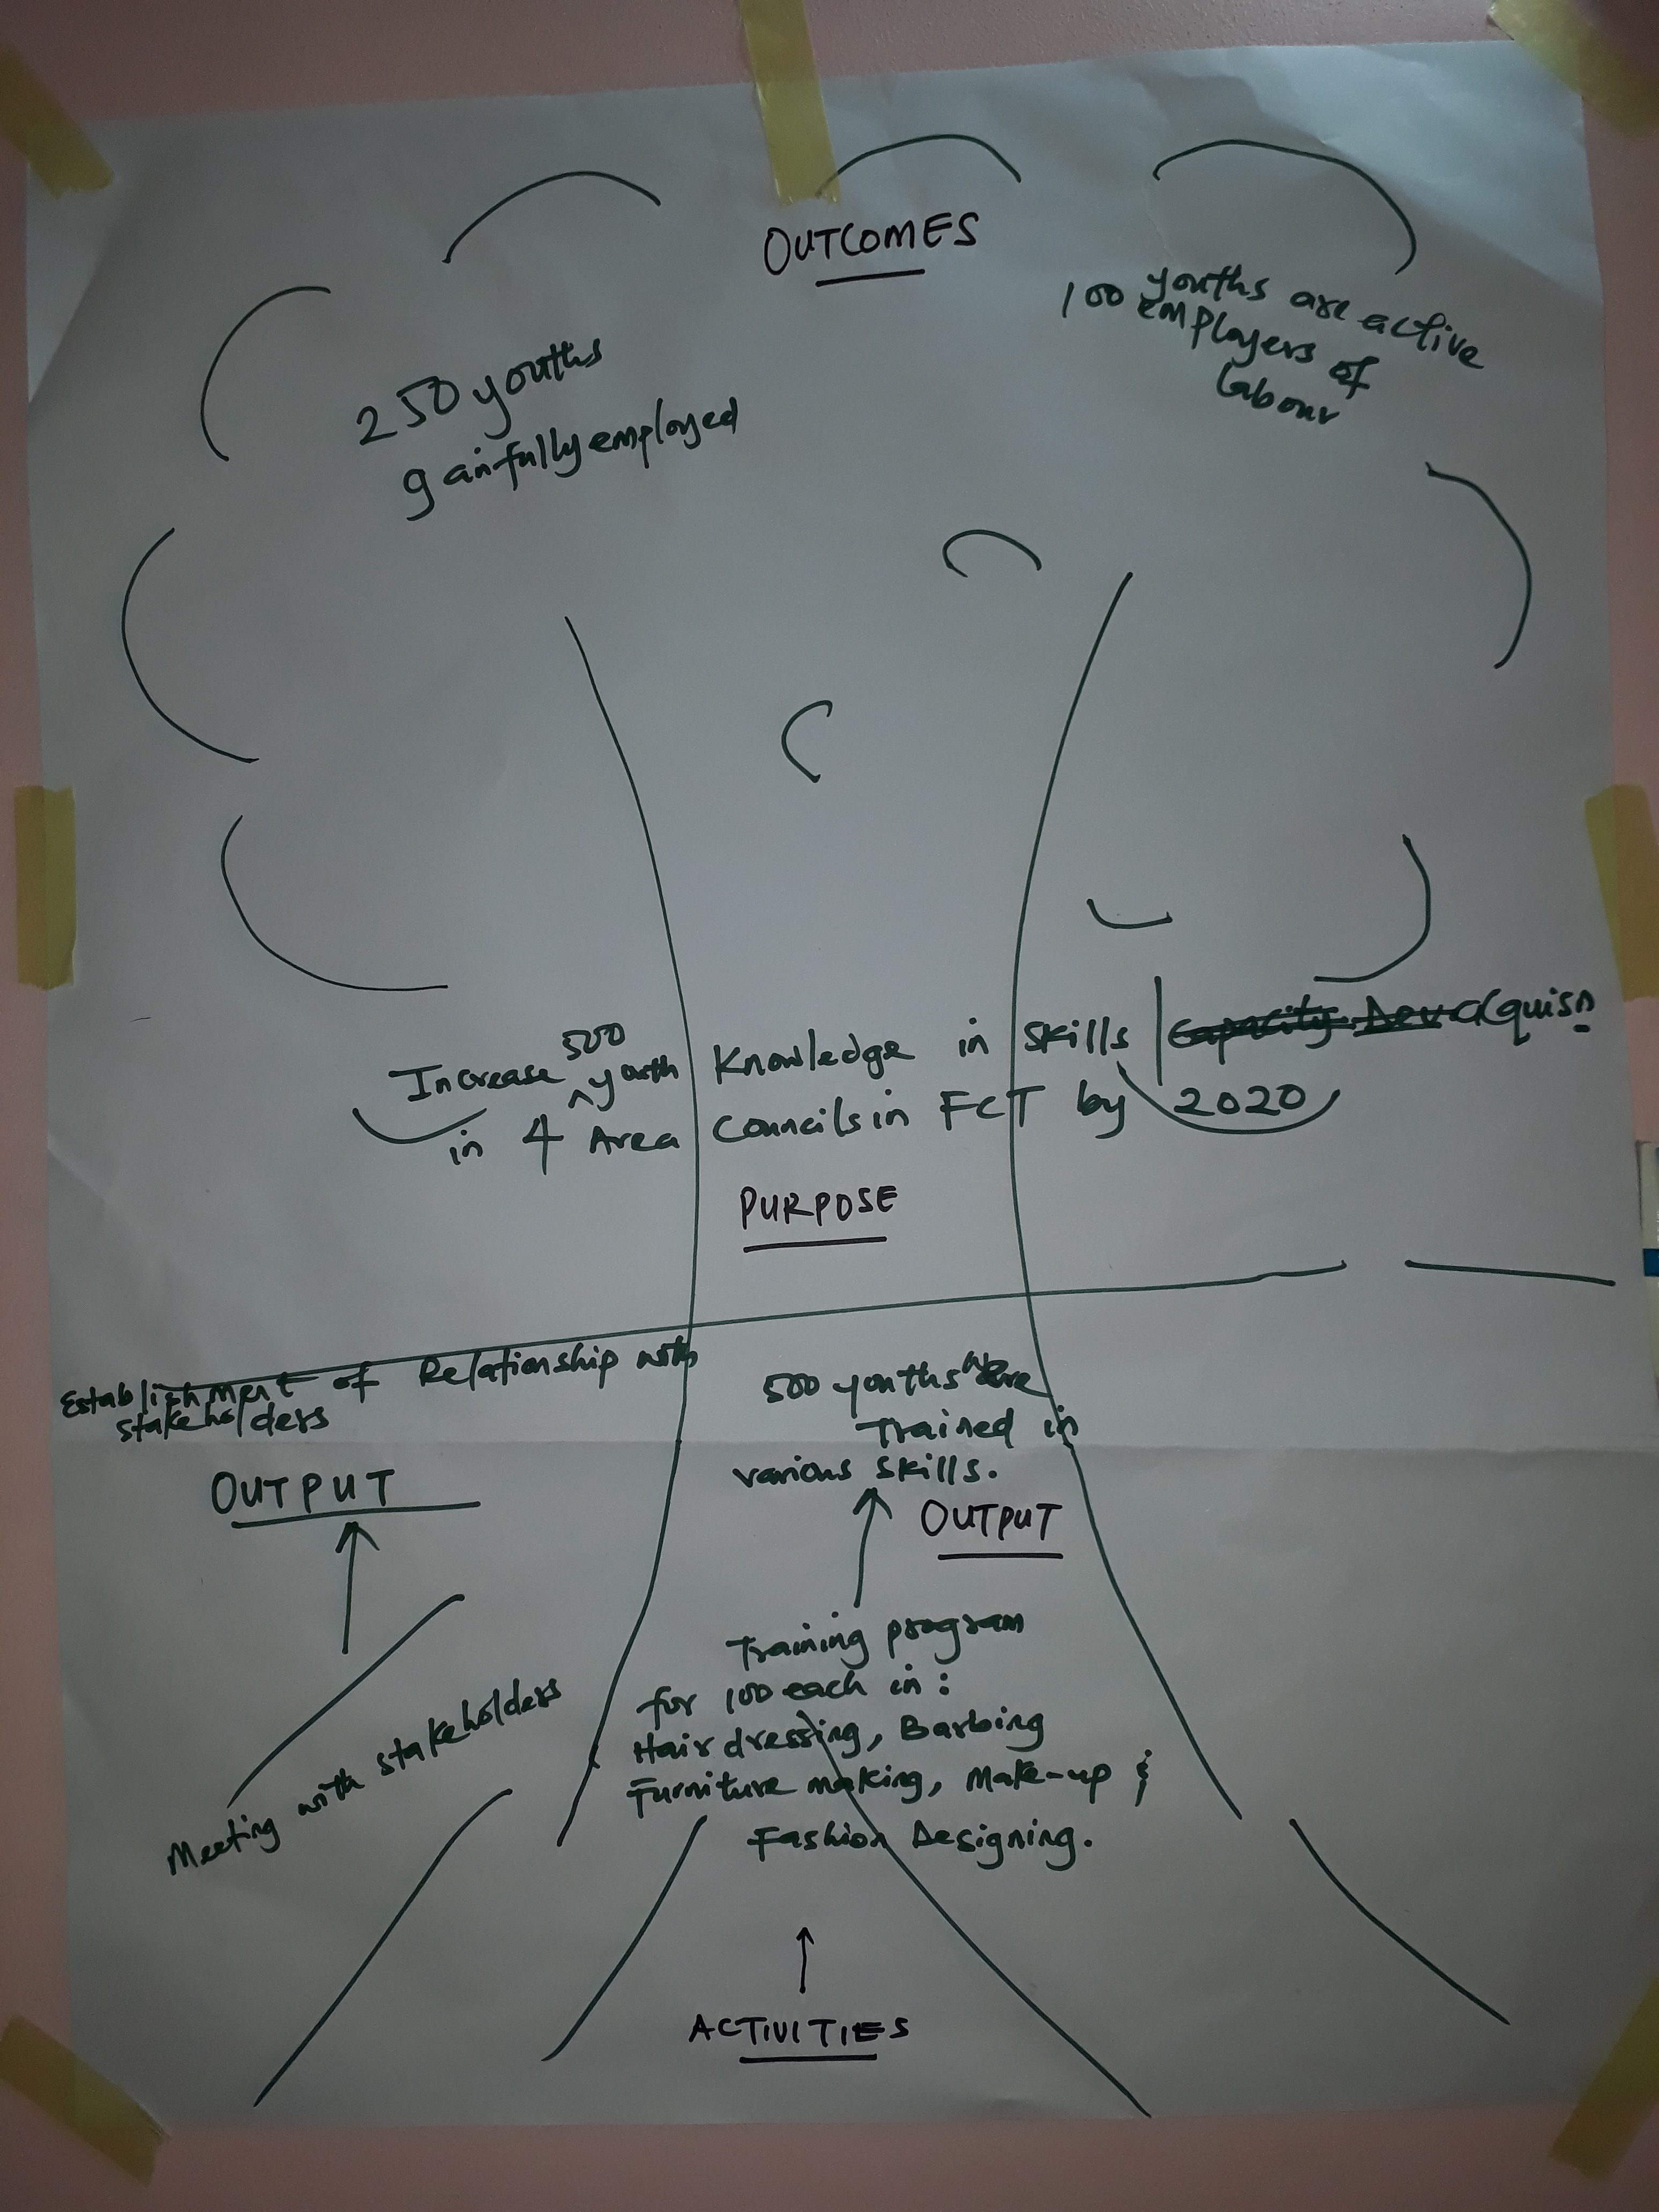 OUTCOMES
250 youths
gainfully employed
100 youths are active
employers of
labour
500
Increase ^ youth Knowledge in skills acquisn
in 4 Area Councils in FCT by 2020
PURPOSE
Establishment of Relationship with
stakeholders
OUTPUT
500 youths were
Trained in
various skills.
OUTPUT
Meeting with stakeholders
Training program
for 100 each in:
Hair dressing, Barbing
Furniture making, Make-up &
Fashion Designing.
ACTIVITIES